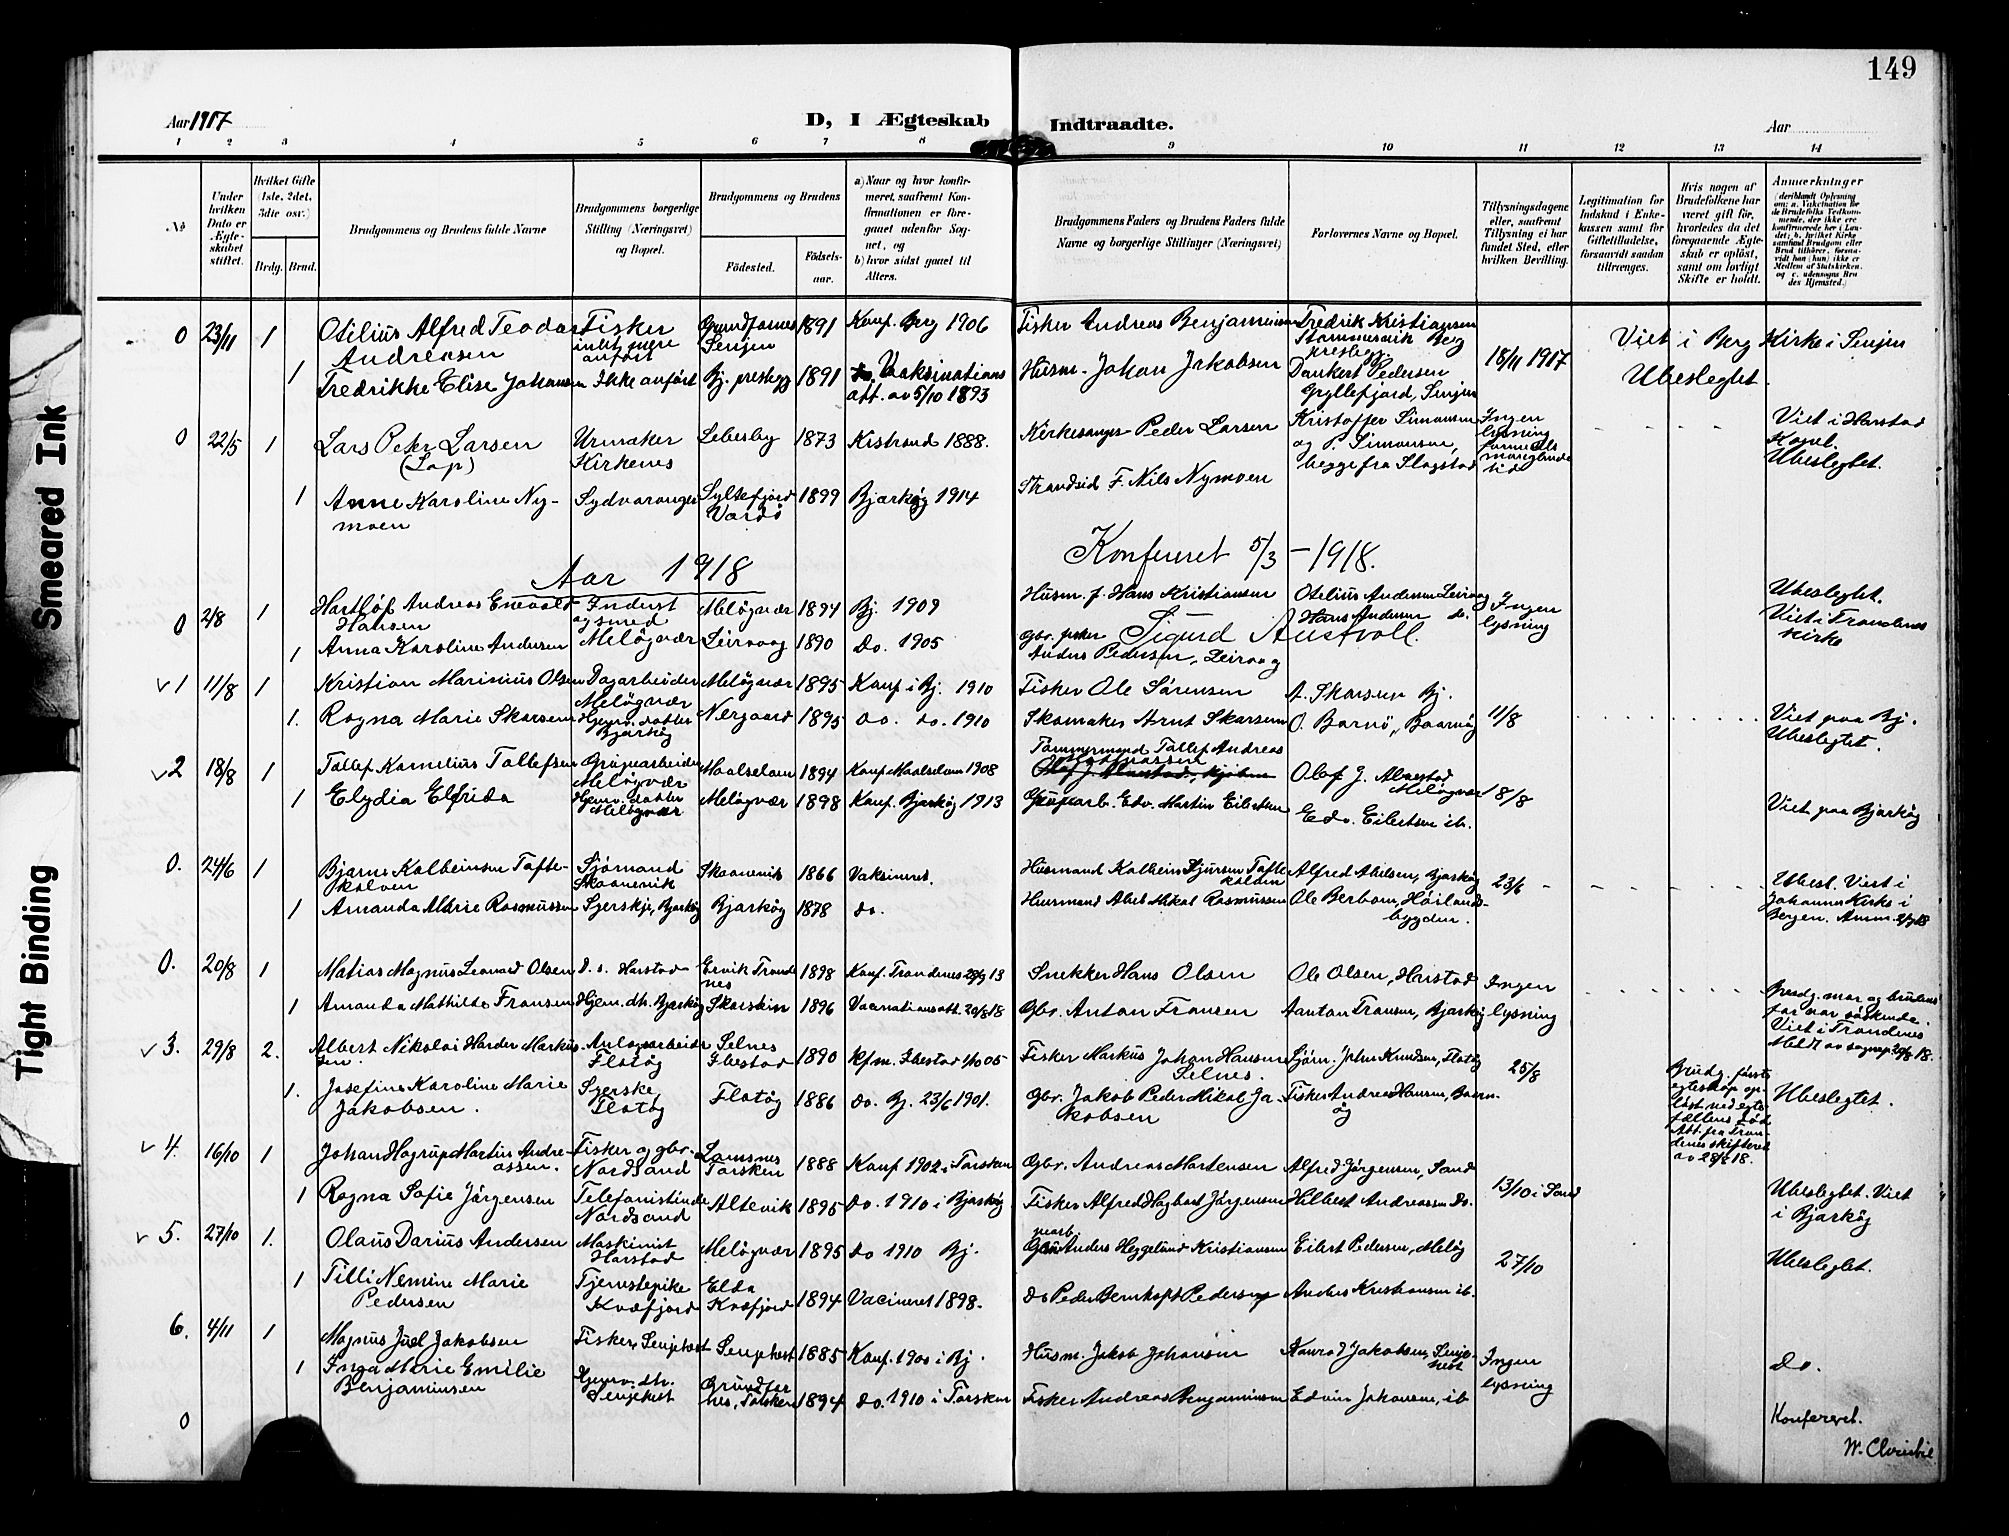 149
Aar 1917
D, I Ægteskab Indtraadte.
Aar
1 2 3 4 5 6 7 8 9 10 11 12 13 14
No
Under hvilken Dato er Ægteskabet stiftet.
Hvilket Gifte (1ste, 2det, 3die osv.)
Brdg. Brud.
Brudgommens og Brudens fulde Navne
Brudgommens borgerlige Stilling (Næringsvei) og Bopæl.
Brudgommens og Brudens
Födested.
Födsels-aar.
a) Naar og hvor konfirmeret, saafremt Konfirmationen er foregaaet udenfor Sognet, og
b) hvor sidst gaaet til Alters.
Brudgommens Faders og Brudens Faders fulde Navne og borgerlige Stillinger (Næringsvei)
Forlovernes Navne og Bopæl.
Tillysningsdagene eller, saafremt Tillysning ei har fundet Sted, efter hvilken Bevilling.
Legitimation for Indskud i Enkekassen samt for Giftetilladelse, forsaavidt saadan tiltrænges.
Hvis nogen af Brudefolkene har været gift för, hvorledes da det foregaaende Ægteskab er oplöst, samt om lovligt Skifte er holdt.
Anmærkninger
0 23/11 1 Otilius Alfred Teodor Andreasen Fisker intet mere anfört Grundfarnes Senjen 1891 Konf. Berg 1906 Fisker Andreas Benjaminsen Fredrik Kristiansen Stammesvik Berg prestegj. 18/11 1917 Viet i Berg Kirke i Senjen
1 Fredrikke Elise Johansen Ikke anfört Bj. prestegj 1891 Vaksinations att. av 5/10 1893 Husm. Johan Jakobsen Dankert Pedersen Gryllefjord, Senjen Ubeslegtet.
0 22/5 1 Lars Peter Larsen (Lap) Urmaker Kirkenes Lebesby 1873 Kistrand 1888. Kirkesanger Peder Larsen Kristoffer Simonsen og P. Simonsen, begge fra Slagstad Ingen lysning formedels manglende tid Viet i Harstad Kapel. Ubeslegtet.
1 Anne Karoline Nymoen Sydvaranger Syltefjord Vardö 1899 Bjarköy 1914 Strandsid. F. Nils Nymoen
Konfereret 5/3 - 1918.
Sigurd Austvoll.
Aar 1918
0 2/8 1 Hartløf Andreas Enevald Hansen Inderst og smed Meløyvær 1894 Bj. 1909 Husm. f. Hans Kristiansen Otelius Andersen Leirvaag Hans Andersen do. Ingen lysning Ubeslegtet. Viet i Trondenes Kirke
1 Anna Karoline Andersen Meløyvær Leirvaag 1890 Do. 1905 Gbr. fisker Anders Pedersen, Leirvaag
v 1 11/8 1 Kristian Marinius Olsen Dagarbeider Meløyvær Meløyvær 1895 Konf. i Bj. 1910 Fisker Ole Sørensen A. Skarsen Bj. 11/8 Viet paa Bj. Ubeslegtet.
1. Ragna Marie Skarsen Hjemv. datter Bjarköy Nergaard 1895 do. do. 1910 Skomaker Arnt Skarsen O. Barnö, Baarnöy
v 2 18/8 1 Tollef Kornelius Tollefsen Grupearbeider Meløyvær Maalselven 1894 Konf. Maalselven 1908 Tømmermand Tollef Andreas Olaf J. Alvestad Meløyvær 18/8 Viet paa Bjarköy
1 Elydia Elfrida Hjemv. datter Meløyvær Meløyvær 1898 Konf. Bjarköy 1913 Grupearb. Edv. Martin Eilertsen Edv. Eilertsen ib.
0. 24/6 1 Bjarne Kolbeinsen Tofteskolven Sjömand Skaanevik Skaanevik 1866 Vaksineret. Husmand Kolbein Sjursen Tofteskolven Alfred Abelsen, Bjarköy 23/6 Ubesl. Viet i Johannes Kirke i Bergen.
1 Amanda Marie Rasmussen Syerske, Bjarköy Bjarköy 1878 do. Husmand Abel Mikal Rasmussen Ole Berbom, Höilandsbygden.
0. 20/8 1 Matias Magnus Leonard Olsen D. s. Harstad Ervik Trondenes 1898 Konf. Trondenes 28/9 13 Snekker Hans Olsen Ole Olsen, Harstad Ingen lysning Brudg. mor og brudens far var söskende. Viet i Trondenes
1 Amanda Mathilde Fransen Hjem. dtr. Bjarköy Skarstein 1896 Vacinationsatt. 20/8 18 Gbr. Anton Fransen Aanton Fransen, Bjarköy
v 3. 29/8 2. Albert Nikolai Harder Markussen. Anlægsarbeider Flatöy Selnes Ibestad 1890 Kfm. Ibestad 1/10 05 Fisker Markus Johan Hansen Selnes. Sjöm. Johs Knudsen, Flatöy 25/8 Brudg. förste egteskap oplöst ved egtefællens död Att. fra Trondenes skifteret av 28/8 18. Ubeslegtet.
1. Josefine Karoline Marie Jakobsen. Syerske, Flatöy Flatöy 1886 do. Bj. 23/6 1901. Gbr. Jakob Peder Mikal Jakobsen Fisker Andreas Hansen, Baarnöy
v 4. 16/10 1 Johan Hagrup Martin Andreassen. Fisker og gbr. Nordsand Lamsnes Torsken 1888 Konf 1902 i Torsken Gbr. Andreas Mortensen Alfred Jörgensen, Sand 13/10 i Sand Ubeslegtet. Viet i Bjarköy
1 Ragna Sofie Jörgensen Telefonistinde Nordsand Altevik 1895 Do. 1910 i Bjarköy Fisker Alfred Hagbart Jörgensen Hilbert Andreassen Do.
v 5. 27/10 1. Olaus Darius Andersen Maskinist Harstad Meløyvær 1895 do 1910 Bj. Anders Heggelund Kristiansen Eilert Pedersen, Meløy 27/10 Ubeslegtet.
1 Tilli Nemine Marie Pedersen Tjenestepike Kvæfjord Elda Kvæfjord 1894 Vacineret 1898. do Peder Bernhoft Pedersen Anders Kristiansen ib.
6. 4/11 1 Magnus Juel Jakobsen Fisker, Senjehest Senjehest 1885 Konf. 1900 i Bj. Husm. Jakob Johansen Konrad Jakobsen, Senjehest Ingen lysning do.
1 Inga Marie Emilie Benjaminsen Hjemv. dtr. Senjehest Grundfarnes, Torsken 1894 do. 1910 i Torsken Fisker Andreas Benjaminsen Edvin Johansen, ib
0
Konfereret.
W. Christie
Smeared Ink
Tight Binding